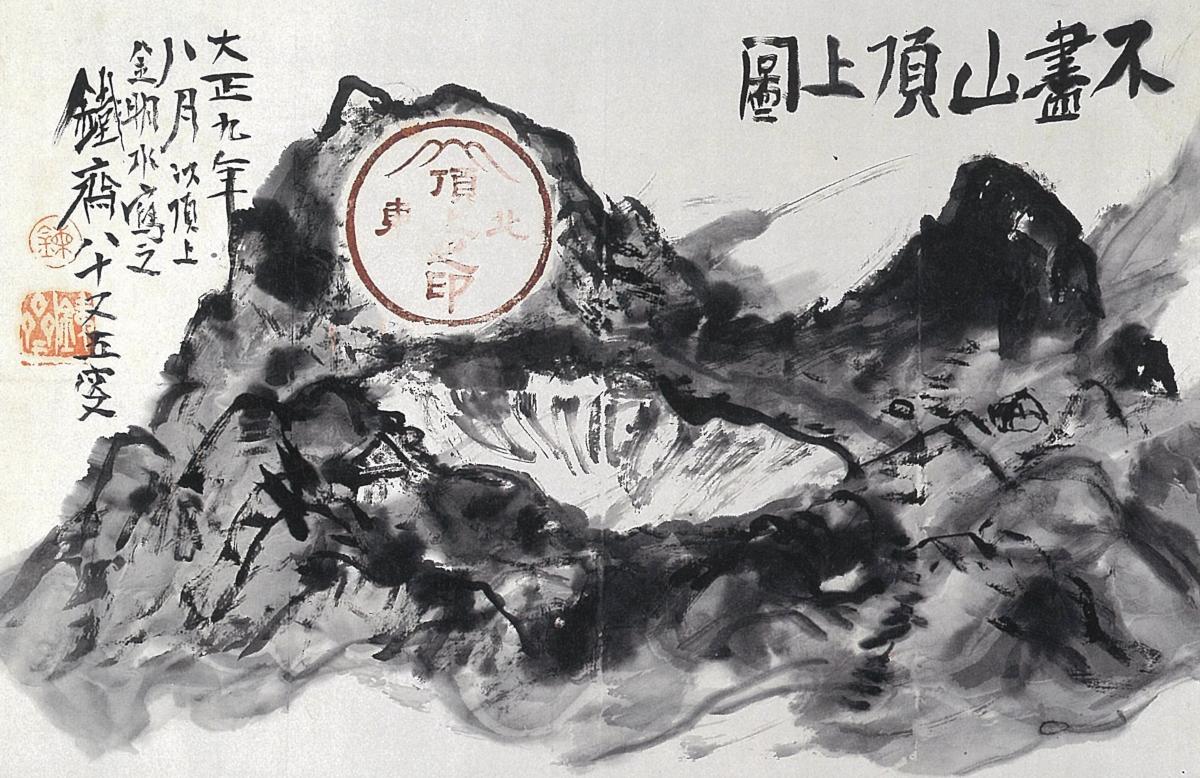 不盡山頂上圖
大正九年
八月以頂上
金明水寫之
鐵齋八十又五叟
北
頂上之印
東